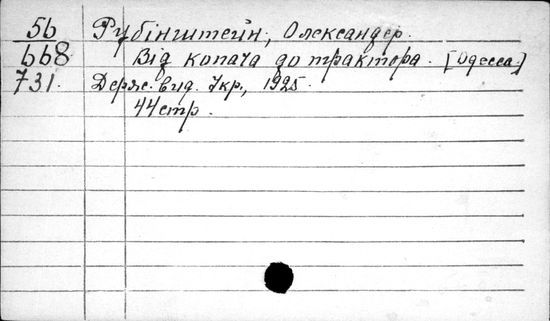 56 Рубінштейн, Олександер.
668 Від копача до трактора. [Одесса.]
731. Держ. вид. Укр., 1925.
44 стр.